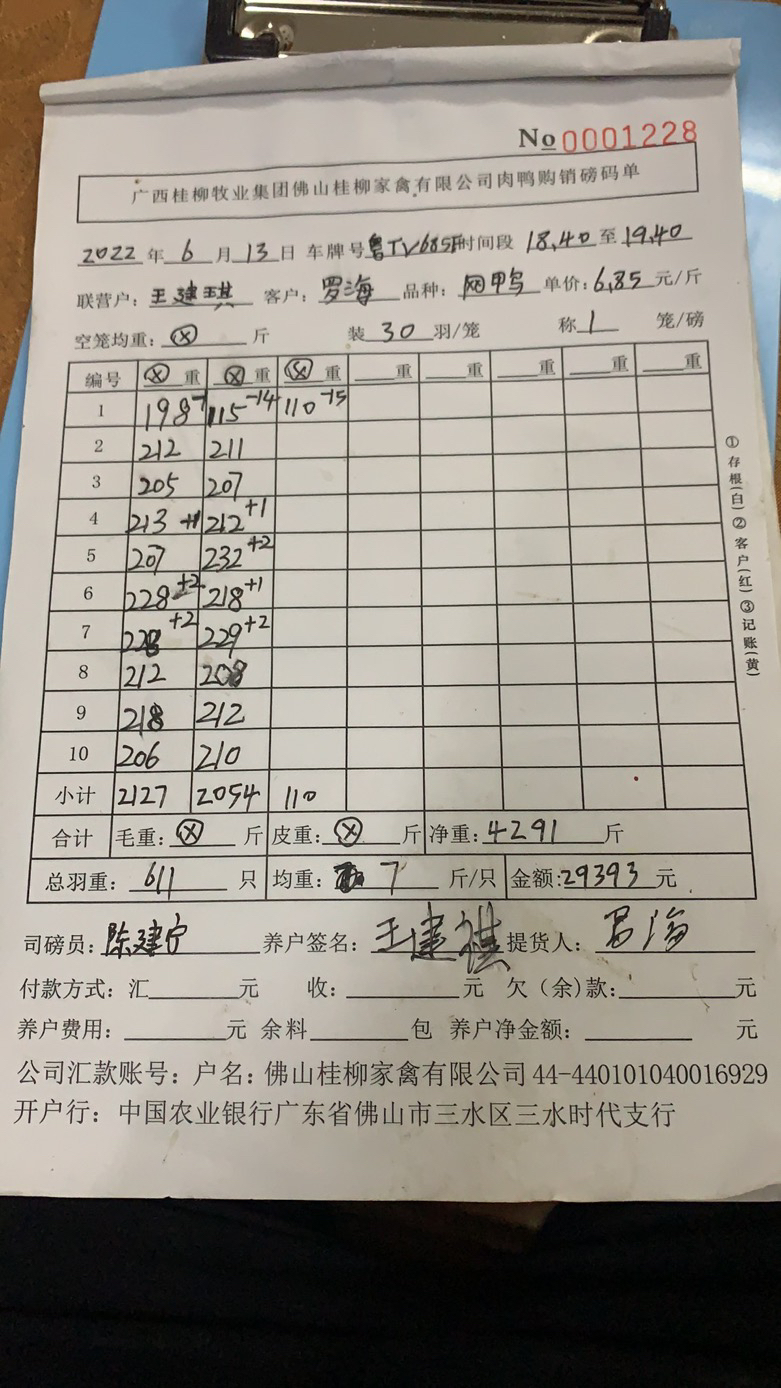 No 0001228
广西桂柳牧业集团佛山桂柳家禽有限公司肉鸭购销磅码单
2022 年 6 月 13 日 车牌号 鲁TV685F 时间段 18,40 至 19,40
联营户: 王建琪 客户: 罗海 品种: 网鸭 单价: 6,85 元/斤
空笼均重: ⊗ 斤 装 30 羽/笼 称 1 笼/磅
编号 ⊗ 重 ⊗ 重 ⊗ 重 重 重 重 重 重
1 198 115 -14 110 -15
2 212 211
3 205 207
4 213 +1 212 +1
5 207 232 +2
6 228 +2 218 +1
7 228 +2 229 +2
8 212 208
9 218 212
10 206 210
小计 2127 2054 110
合计 毛重: ⊗ 斤 皮重: ⊗ 斤 净重: 4291 斤
总羽重: 611 只 均重: 7 斤/只 金额: 29393 元
司磅员: 陈建宁 养户签名: 王建祺 提货人: 罗海
付款方式: 汇 元 收: 元 欠(余)款: 元
养户费用: 元 余料 包 养户净金额: 元
公司汇款账号: 户名: 佛山桂柳家禽有限公司 44-440101040016929
开户行: 中国农业银行广东省佛山市三水区三水时代支行
①存根(白)②客户(红)③记账(黄)